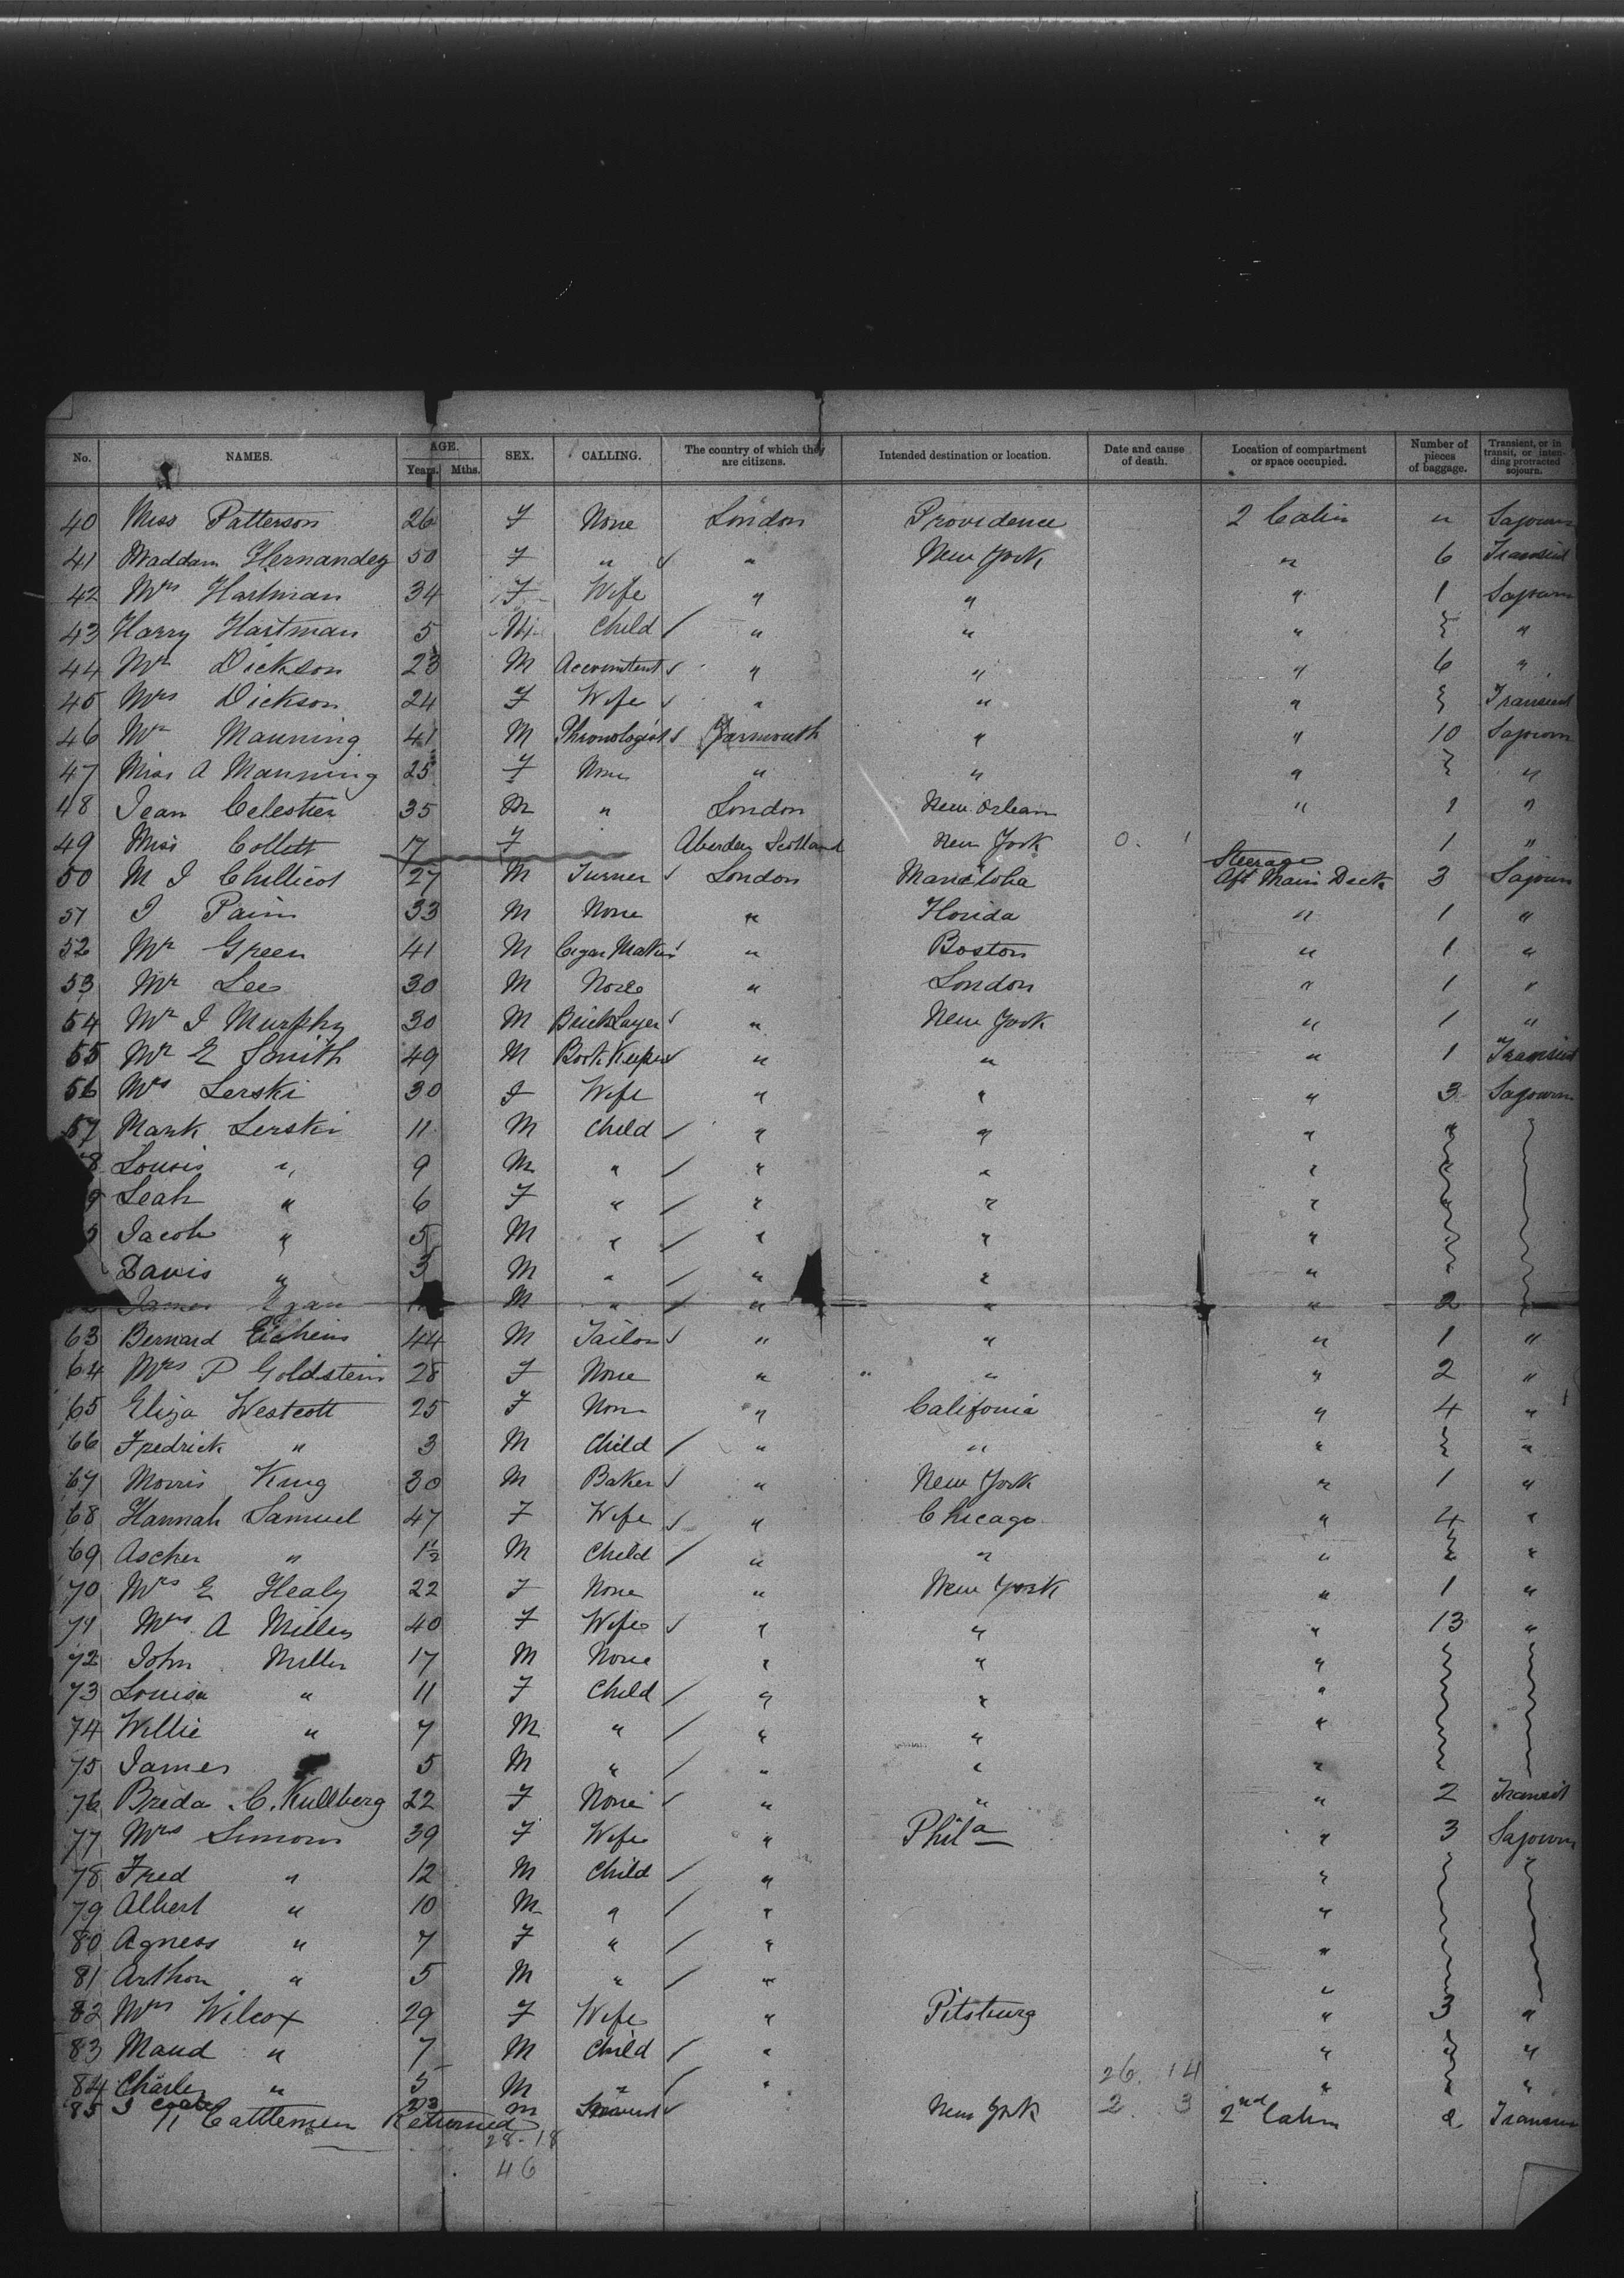 No. NAMES. AGE. Years. Mths. SEX. CALLING. The country of which they are citizens. Intended destination or location. Date and cause of death. Location of compartment or space occupied. Number of pieces of baggage. Transient, or in transit, or intending protracted sojourn.
40 Miss Patterson 26 F None London Providence 2 Cabin " Sojourn
41 Maddam Hernandez 50 F " " New York " 6 Transient
42 Mrs Hartman 34 F Wife " " " 1 Sojourn
43 Harry Hartman 5 M Child " " " "
44 Mr Dickson 23 M Accountent " " " 6 "
45 Mrs Dickson 24 F Wife " " " Transient
46 Mr Manning 41 M Phronologist Yarmouth " " 10 Sojourn
47 Miss A Manning 25 F None " " " "
48 Jean Celestier 35 M " London New Orlean " 1 "
49 Miss Collett 17 F Aberdeen Scotland New York 0. 1 1 "
50 M J Chillicot 27 M Turner London Manitoba Steerage Aft Main Deck 3 Sojourn
51 J Paim 33 M None " Florida " 1 "
52 Mr Green 41 M Cigar Maker " Boston " 1 "
53 Mr Lee 30 M None " London " 1 "
54 Mr J Murphy 30 M BrickLayer " New York " 1 "
55 Mr E Smith 49 M Book Keeper " " " 1 Transient
56 Mrs Lerski 30 F Wife " " " 3 Sojourn
57 Mark Lerski 11 M Child " " " "
8 Louis " 9 M " " " "
9 Leah " 6 F " " " " "
Jacob " 5 M " " " "
Davis " 3 M " " " " "
James Egan M " " " " 2
63 Bernard 44 M Tailor " " " 1 "
64 Mrs P Goldstein 28 F None " " " " 2 "
65 Eliza Westcott 25 F Non " Califonia " 4 "
66 Fredrick " 3 M Child " " " "
67 Morris King 30 M Baker " New York " 1 "
68 Hannah Samuel 47 F Wife " Chicago " 4 "
69 Ascher " 1½ M Child " " " "
70 Mrs E Healy 22 F None " New York " 1 "
71 Mrs A Miller 40 F Wife " " " 13 "
72 John Miller 17 M None " " "
73 Louisa " 11 F Child " " "
74 Willie " 7 M " " " "
75 James 5 M " " " "
76 Breda C. Kullberg 22 F None " " " 2 Transit
77 Mrs Simons 39 F Wife " Phila " 3 Sojourn
78 Fred " 12 M Child " " "
79 Albert " 10 M " " "
80 Agness " 7 F " " "
81 Arthon " 5 M " " "
82 Mrs Wilcox 29 F Wife " Pitsburg " 3 "
83 Maud " 7 M Child " " "
84 Charles " 5 M " " 26. 14 " " "
85 J 23 M New York 2 3 2nd Cabin 2 Transient
11 Cattlemen Returned
28-18
46